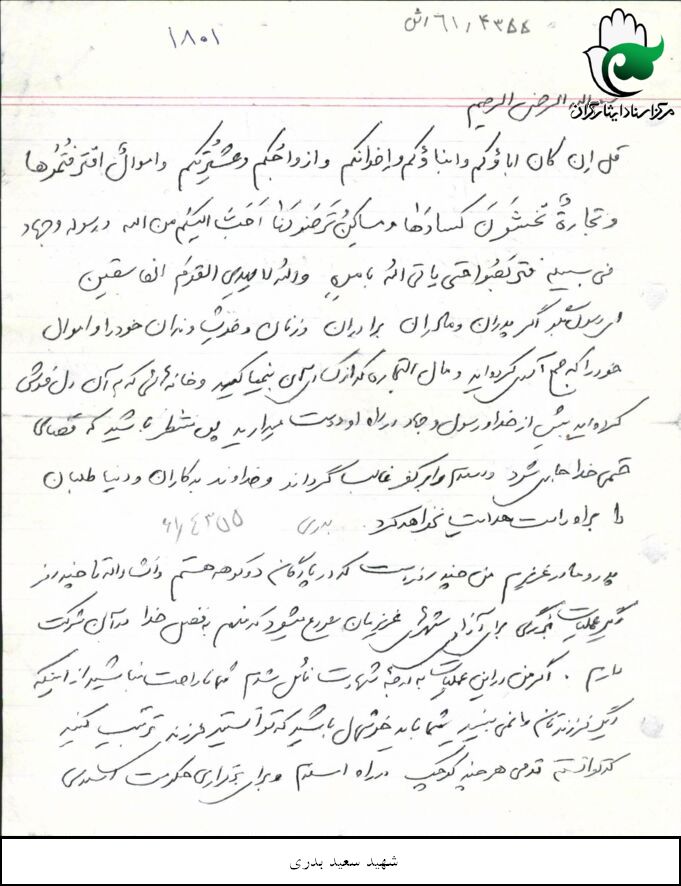 ۶۱/۴۳۵۵/اش
۱۸۰۱
مرکز اسناد ایثارگران
الله الرحمن الرحیم
قل ان کان اباؤکم و ابناؤکم و اخوانکم و ازواجکم و عشیرتکم و اموال اقترفتموها
و تجارة تخشون کسادها و مساکن ترضونها احب الیکم من الله و رسوله و جهاد
فی سبیله فتربصوا حتی یاتی الله بامره والله لا یهدی القوم الفاسقین
ای رسول بگو اگر پدران و مادران برادران و زنان و خویشاوندان خود را و اموال
خود را که جمع آوری کرده اید و مال التجاره که از کسادی آن بیمناکید و خانه هائی که به آن دل خوش
کرده اید بیش از خدا و رسول و جهاد در راه او دوست میدارید پس منتظر باشید که قضای
حتمی خدا جاری شود و اسلام را بر کفر غالب گرداند و خداوند بدکاران و دنیا طلبان
را براه راست هدایت نخواهد کرد. بدری ۶۱/۴۳۵۵
پدر و مادر عزیزم من چند روزیست که در پادگان دوکوهه هستم و انشاءالله تا چند روز
دیگر عملیات بزرگی برای آزادی شهرهای عزیزمان شروع میشود که منهم به فضل خدا در آن شرکت
دارم. اگر من در این عملیات به درجه شهادت نائل شدم شما ناراحت نباشید از اینکه
دیگر فرزندتان را نمی بینید شما باید خوشحال باشید که توانستید فرزندی تربیت کنید
که توانست قدمی هر چند کوچک در راه اسلام و برای برقراری حکومت اسلامی
شهید سعید بدری